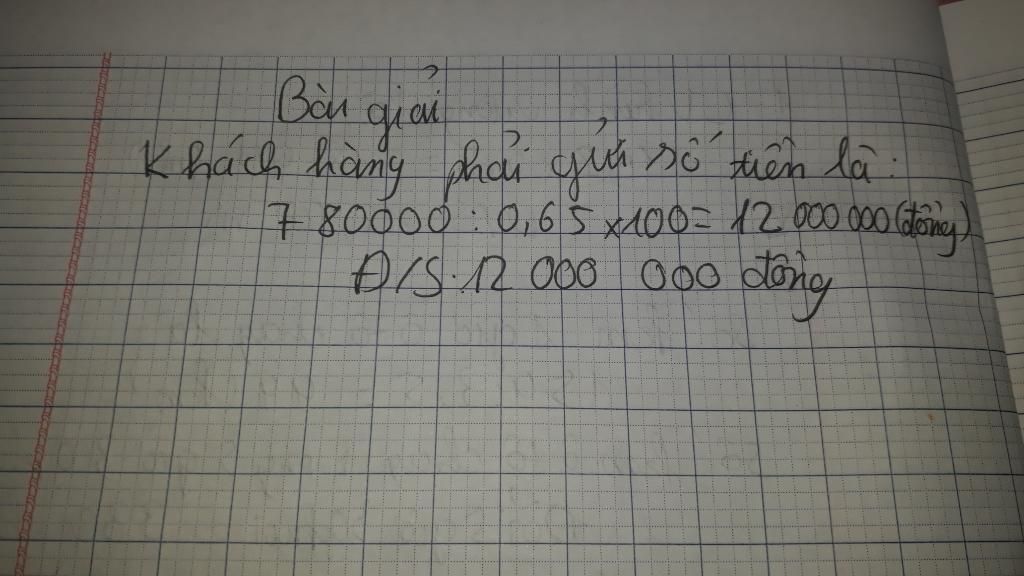 Bài giải
Khách hàng phải gửi số tiền là:
7 80000 : 0,65 x 100 = 12 000 000 (đồng)
Đ/S: 12 000 000 đồng